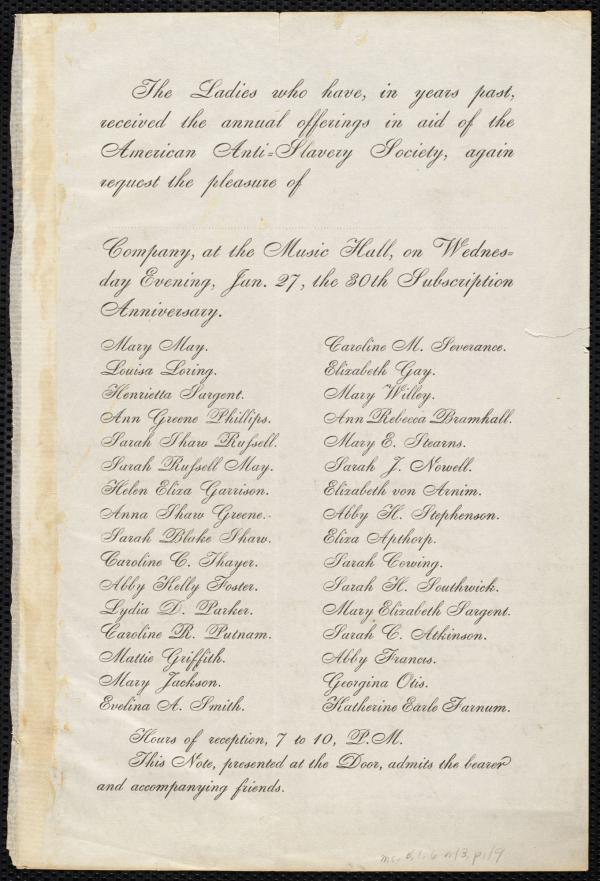 The Ladies who have, in years past,
received the annual offerings in aid of the
American Anti=Slavery Society, again
request the pleasure of
Company, at the Music Hall, on Wednes=
day Evening, Jan. 27, the 30th Subscription
Anniversary.
Mary May.
Louisa Loring.
Henrietta Sargent.
Ann Greene Phillips.
Sarah Shaw Russell.
Sarah Russell May.
Helen Eliza Garrison.
Anna Shaw Greene.
Sarah Blake Shaw.
Caroline C. Thayer.
Abby Kelly Foster.
Lydia D. Parker.
Caroline R. Putnam.
Mattie Griffith.
Mary Jackson.
Evelina A. Smith.
Caroline M. Severance.
Elizabeth Gay.
Mary Willey.
Ann Rebecca Bramhall.
Mary E. Stearns.
Sarah J. Nowell.
Elizabeth von Arnim.
Abby H. Stephenson.
Eliza Apthorp.
Sarah Cowing.
Sarah H. Southwick.
Mary Elizabeth Sargent.
Sarah C. Atkinson.
Abby Francis.
Georgina Otis.
Katherine Earle Farnum.
Hours of reception, 7 to 10, P.M.
This Note, presented at the Door, admits the bearer
and accompanying friends.